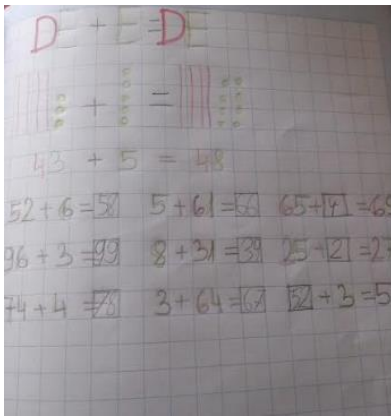 DE + E = DE
+ =
43 + 5 = 48
52 + 6 = 58 5 + 61 = 66 65 + 4 = 69
96 + 3 = 99 8 + 31 = 39 25 + 2 = 2
74 + 4 = 78 3 + 64 = 67 + 3 = 5